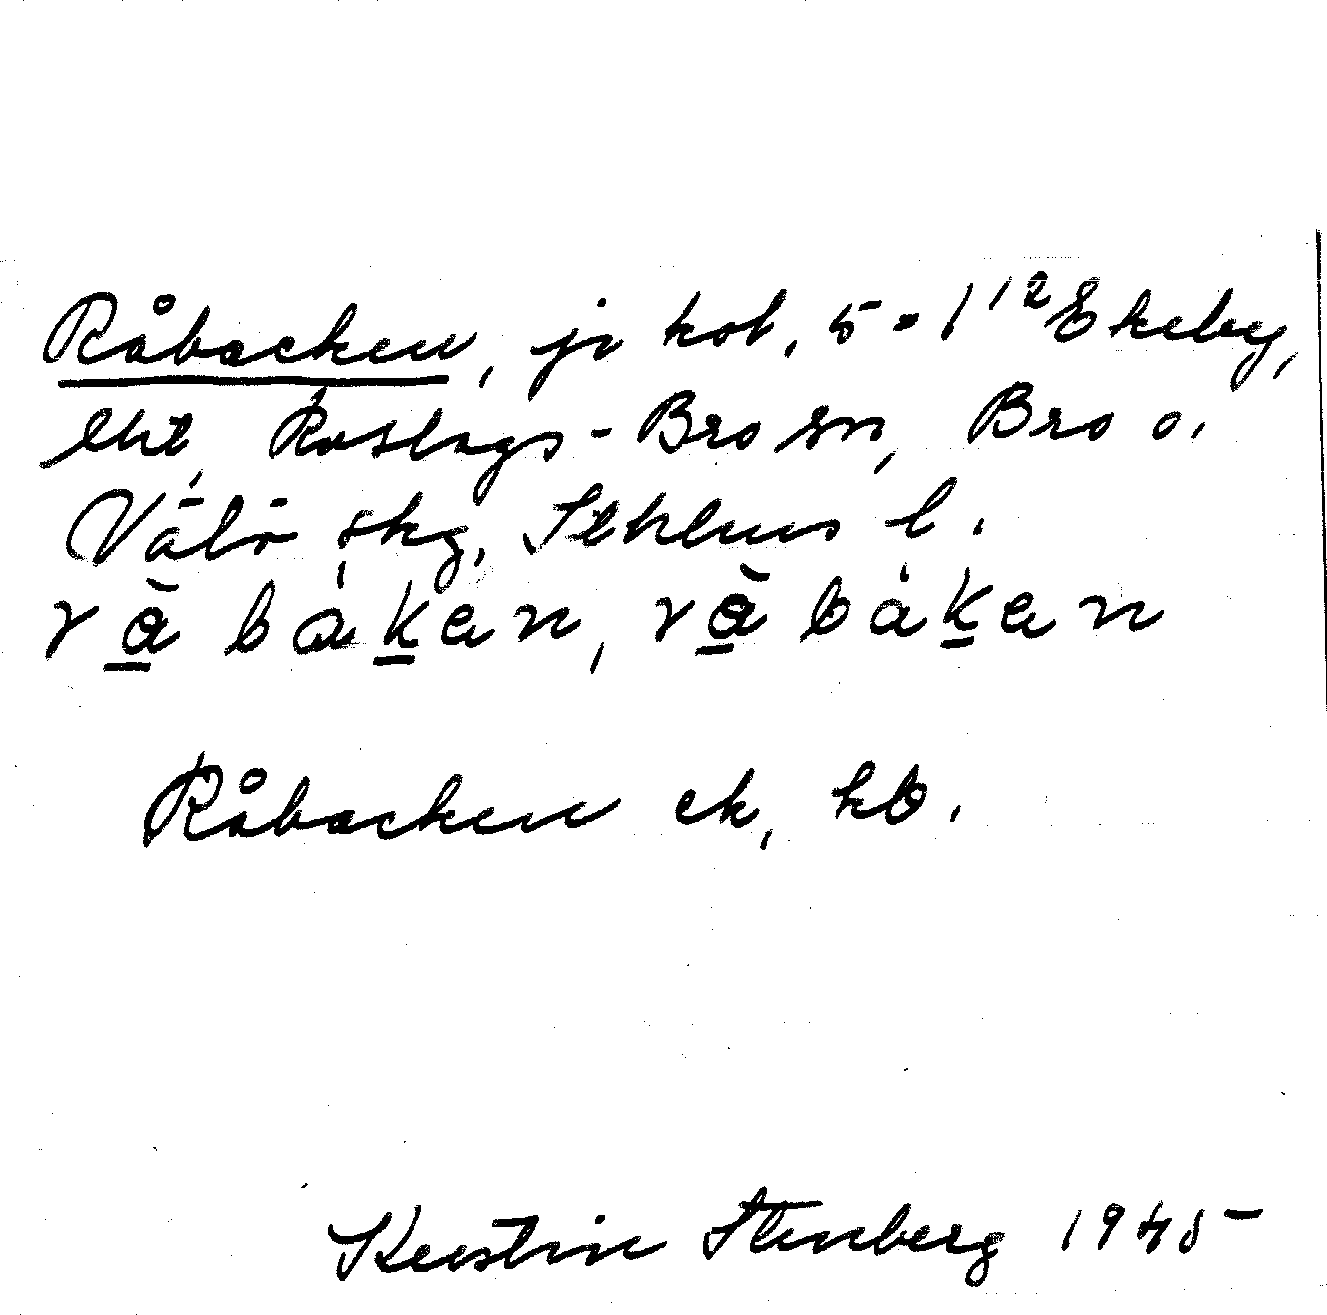 Råbacken, jo kol, 5 - 1¹² Ekeby,
Roslags-Bro sn, Bro o.
VäLö skg, Sthlms l.
rå bakan, rå bakan
Råbacken ek, kb.
Kerstin Stenberg 1945